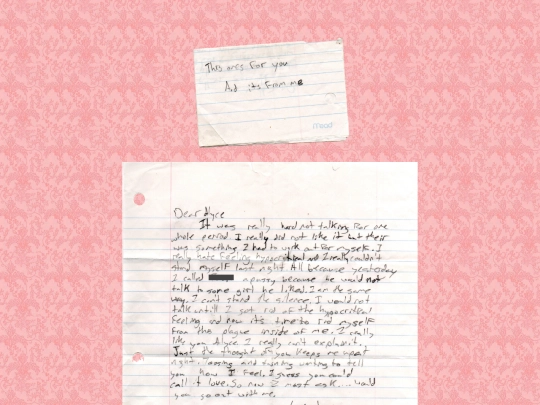 This ones for you
And its from me
mead
Dear Alyce
It was really hard not talking for one
whole period. I really did not like it but their
was something I had to work out for myself. I
really hate feeling hypocritical and I really couldn't
stand myself last night All because yesterday
I called a pussy because he would not
talk to some girl he liked. I am the same
way. I can't stand the silence. I would not
talk untill I got rid of the hypocritical
feeling and now its time to rid myself
from the plague inside of me. I really
like you Alyce I really can't explain it.
Just the thought of you keeps me up at
night. Tossing and turning wanting to tell
you how I feel. I guess you could
call it love. So now I must ask... would
you go out with me.